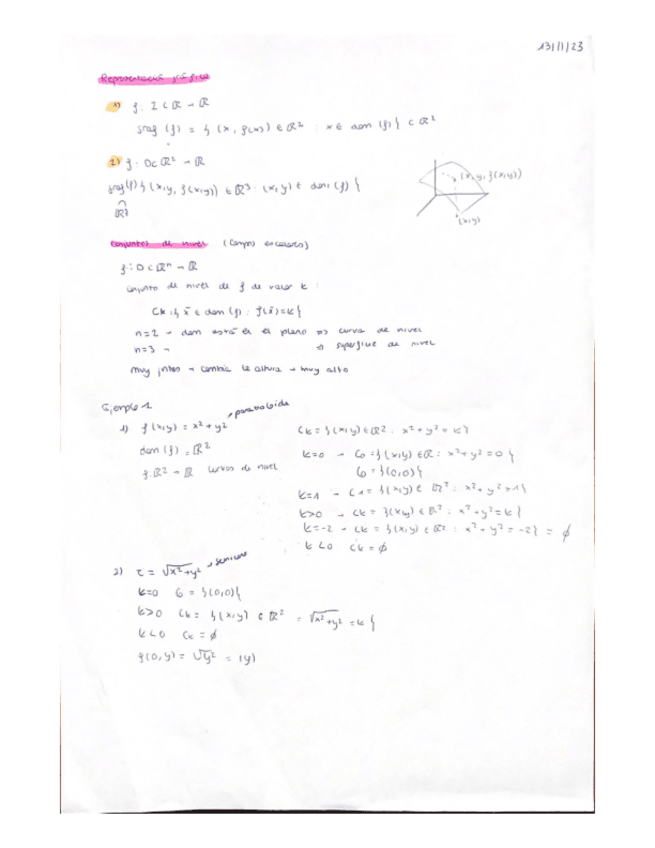 13/1/23
Representació gráfica
1) f: I ⊂ ℝ → ℝ
graf (f) = { (x, f(x)) ∈ ℝ² : x ∈ dom (f) } ⊂ ℝ²
2) f: D ⊂ ℝ² → ℝ
graf(f) { (x,y, f(x,y)) ∈ ℝ³ : (x,y) ∈ dom (f) }
∩
ℝ³
(x,y, f(x,y))
(x,y)
Conjuntos de nivel (Campos escalares)
f: D ⊂ ℝⁿ → ℝ
Conjunto de nivel de f de valor k :
Ck = { x̄ ∈ dom (f) : f(x̄) = k }
n=2 → dom está en el plano ⇒ curva de nivel
n=3 → ⇒ superficie de nivel
muy juntos → cambia la altura → muy alto
Ejemplo 1
1) f(x,y) = x² + y² → paraboloide
dom (f) = ℝ²
f: ℝ² → ℝ curvas de nivel
Ck = { (x,y) ∈ ℝ² : x² + y² = k }
k=0 → C0 = { (x,y) ∈ ℝ : x² + y² = 0 }
C0 = { (0,0) }
k=1 → C1 = { (x,y) ∈ ℝ² : x² + y² = 1 }
k>0 → Ck = { (x,y) ∈ ℝ² : x² + y² = k }
k=-2 → Ck = { (x,y) ∈ ℝ² : x² + y² = -2 } = ∅
k<0 Ck = ∅
2) z = √x² + y² → semicono
k=0 C0 = { (0,0) }
k>0 Ck = { (x,y) ∈ ℝ² = √x² + y² = k }
k<0 Ck = ∅
f(0,y) = √y² = |y|